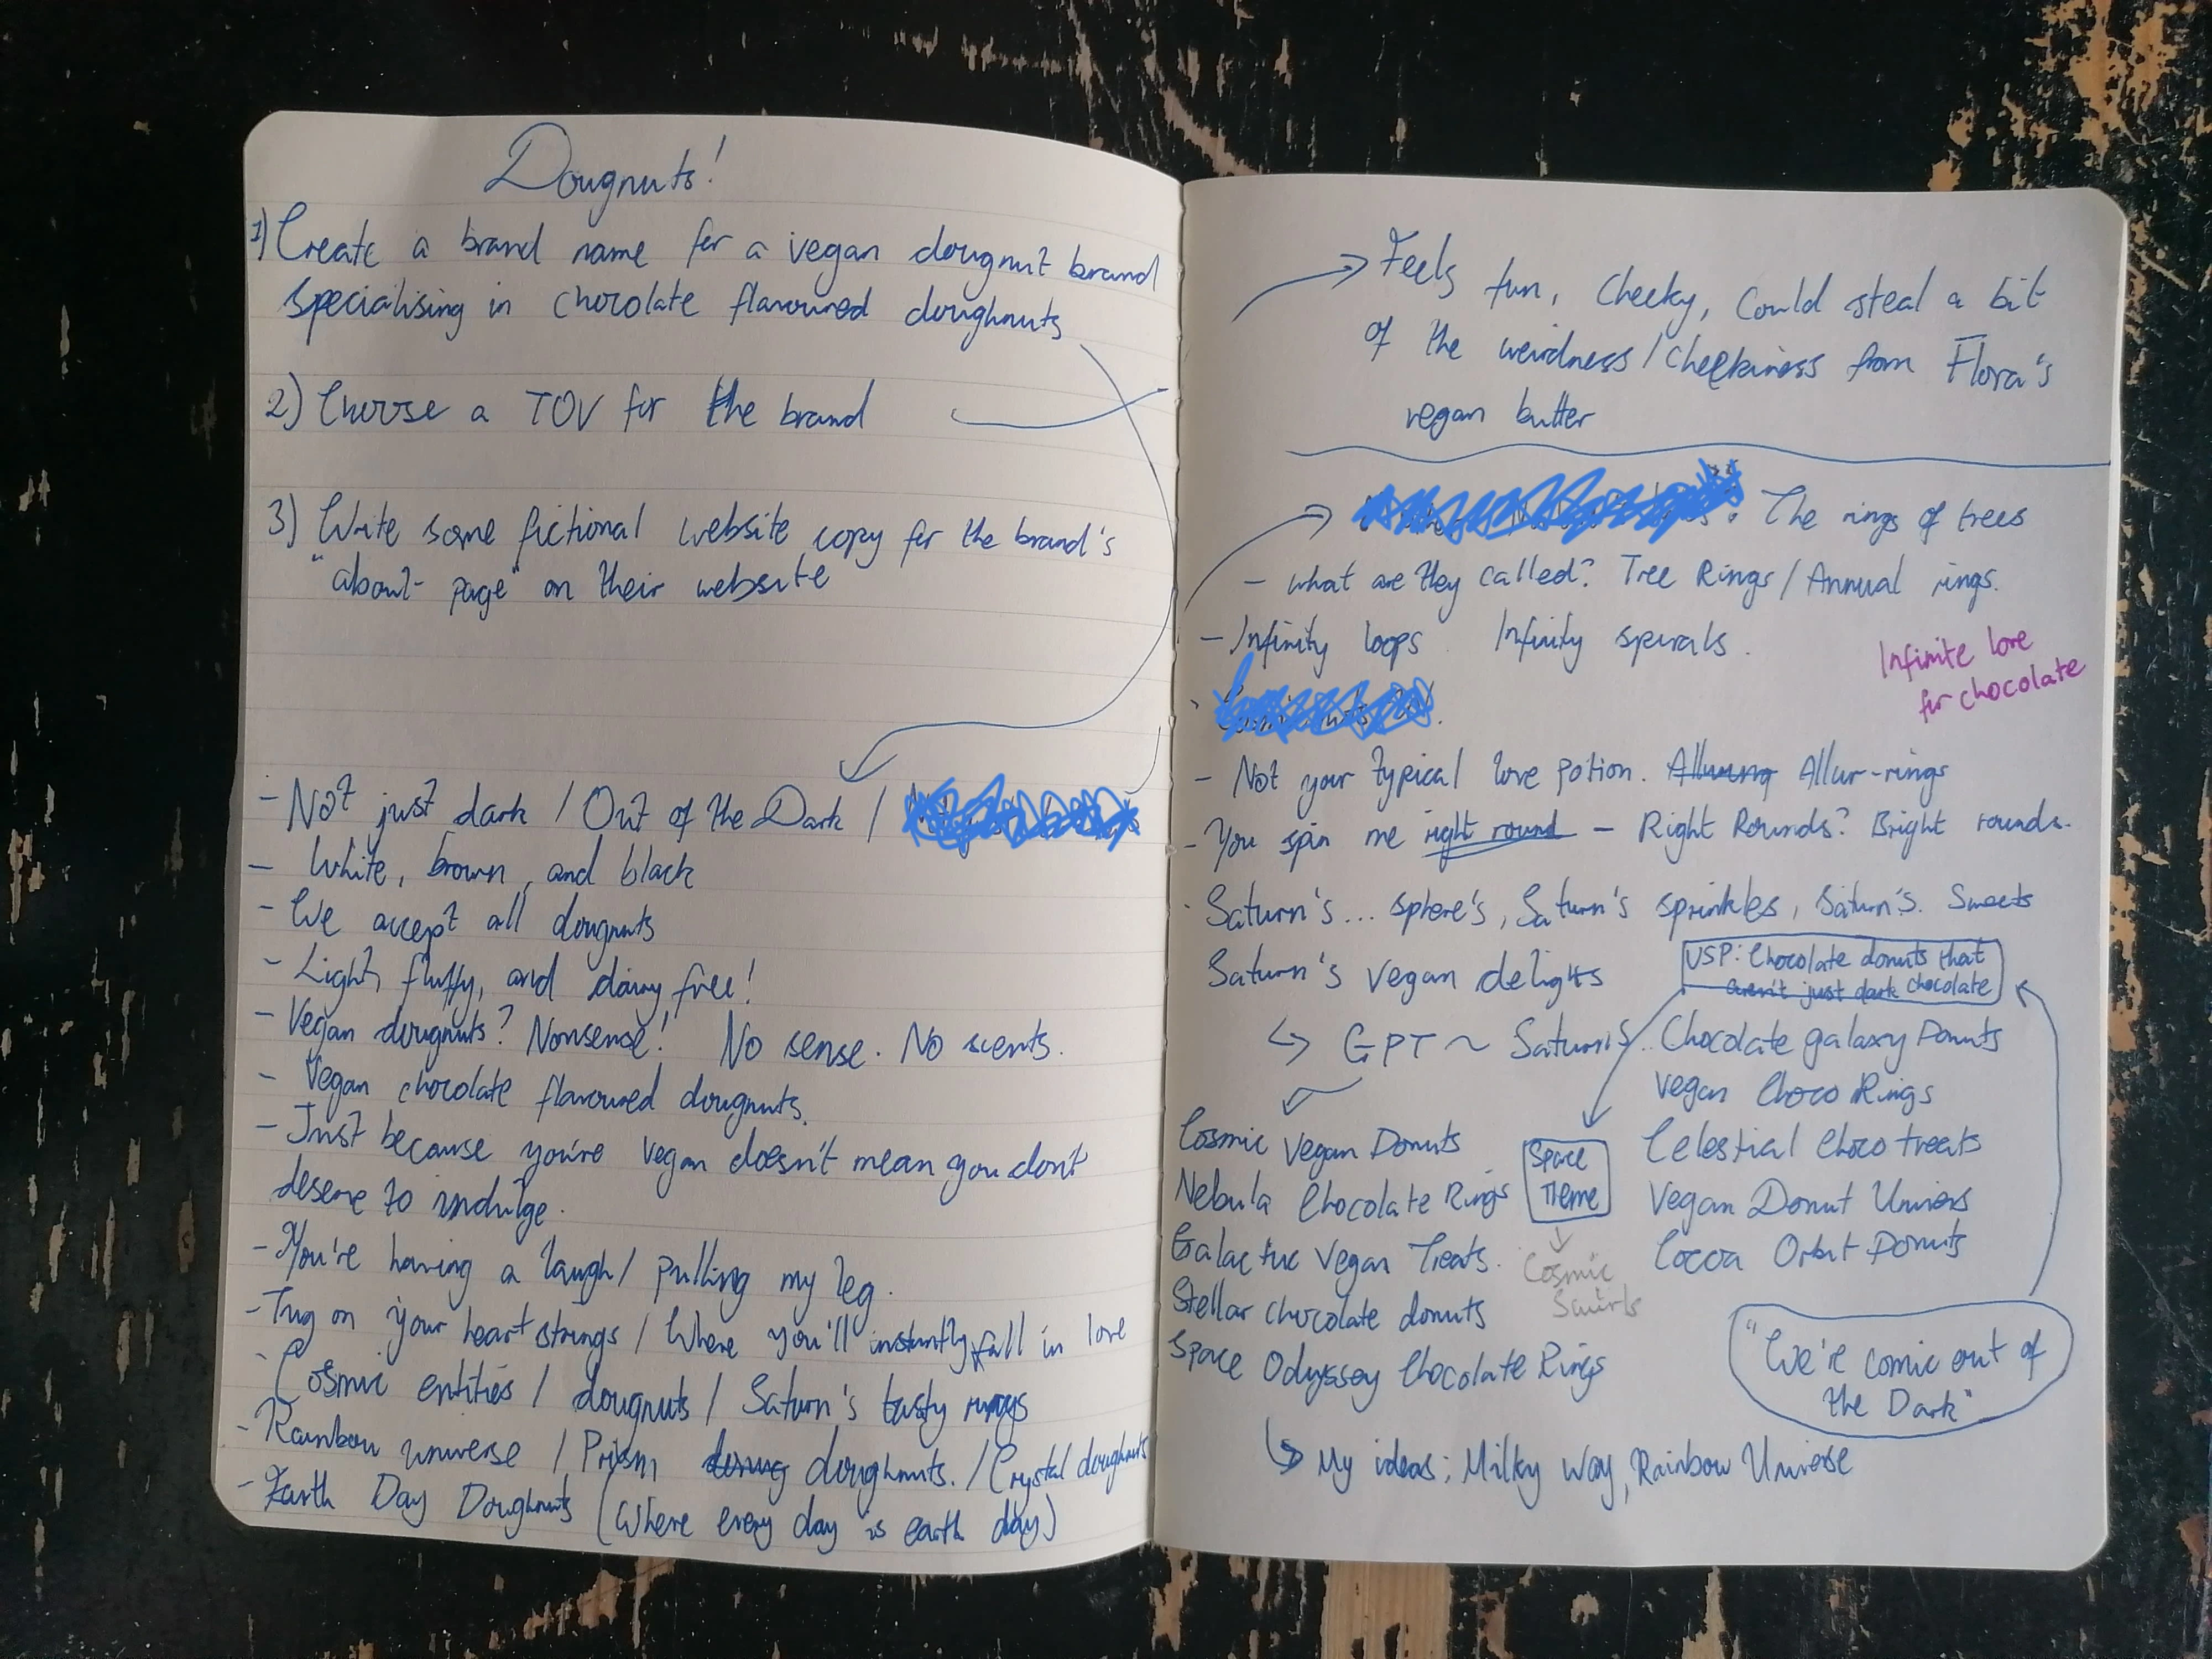 Dougnuts!
1) Create a brand name for a vegan dougnut brand
specialising in chocolate flavoured doughnuts
2) Choose a TOV for the brand
3) Write some fictional website copy for the brand's
"about-page" on their website
- Not just dark / Out of the Dark /
- White, brown, and black
- We accept all dougnuts
- Light, fluffy, and dairy free!
- Vegan dougnuts? Nonsense! No sense. No scents.
- Vegan chocolate flavoured dougnuts.
- Just because you're vegan doesn't mean you don't
deserve to indulge.
- You're having a laugh / pulling my leg.
- Tug on your heart strings / Where you'll instantly fall in love
- Cosmic entities / dougnuts / Saturn's tasty rings
- Rainbow universe / Prism doughnuts. / Crystal doughnuts
- Earth Day Doughnuts (Where every day is earth day)
Feels fun, Cheeky, Could steal a bit
of the weirdness / cheekiness from Flora's
vegan butter
The rings of trees
- what are they called? Tree Rings / Annual rings.
- Infinity loops. Infinity spirals.
Infinite love
for chocolate
- Not your typical love potion. Alluring Allur-rings
- You spin me right round - Right Rounds? Bright rounds.
Saturn's... sphere's, Saturn's sprinkles, Saturn's. Sweets
Saturn's vegan delights
USP: Chocolate donuts that
aren't just dark chocolate
GPT ~ Saturn's... Chocolate galaxy Donuts
Vegan Choco Rings
Cosmic Vegan Donuts
Nebula Chocolate Rings
Galactic Vegan Treats.
Stellar chocolate donuts
Space Odyssey Chocolate Rings
Space
Theme
Cosmic
Swirls
Celestial Choco treats
Vegan Donut Univers
Cocoa Orbit Donuts
"We're comic out of
the Dark"
My ideas: Milky Way, Rainbow Universe